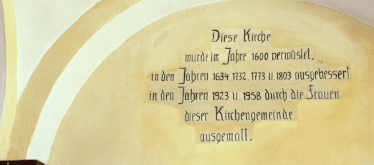 Diese Kirche
wurde im Jahre 1600 verwüstet,
in den Jahren 1634, 1732, 1773 u. 1803 ausgebessert
in den Jahren 1923 u. 1958 durch die Frauen
dieser Kirchengemeinde
ausgemalt.